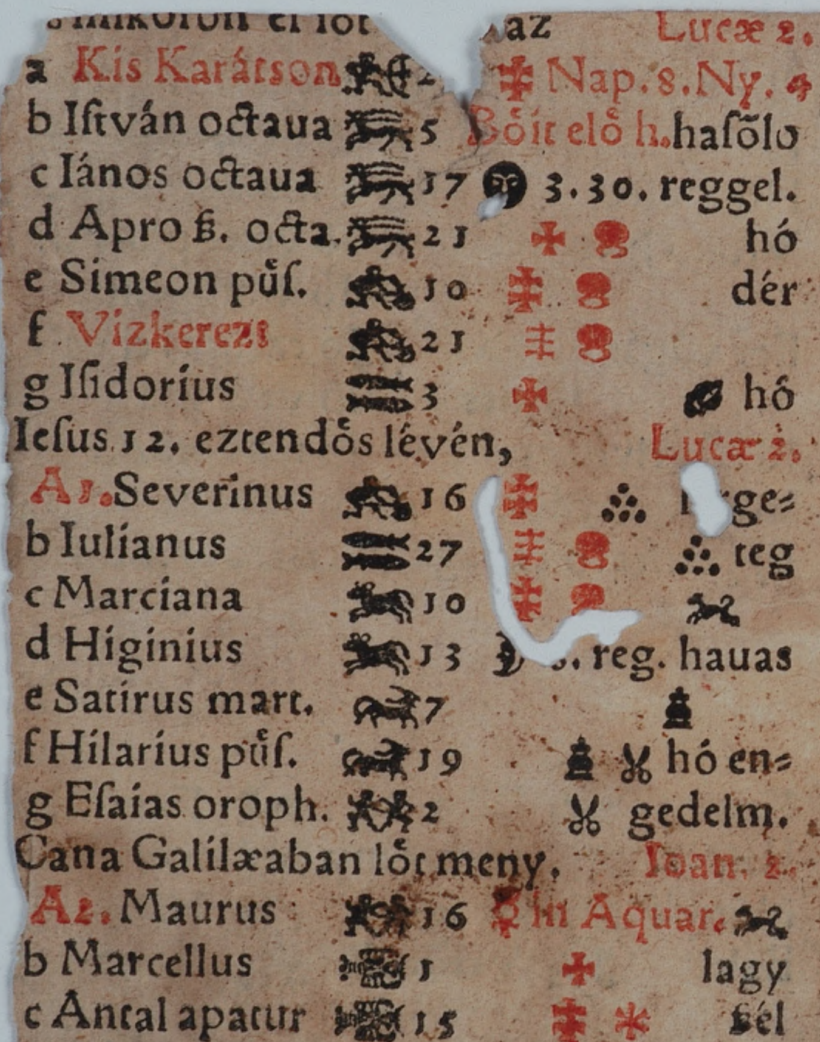 mikoron el lőt az Lucæ 2.
a Kis Karátson Nap. 8. Ny. 4
b Iſtván octaua 5 Bőit elő h. haſõlo
c Iános octaua 17 3.30. reggel.
d Apro ß. octa. 21 hó
e Simeon pűſ. 10 dér
f Vizkerezt 21
g Iſidorius 3 hó
Ieſus 12. eztendős lévén, Lucæ 2.
A 1. Severinus 16 ge⸗
b Iulianus 27 teg
c Marciana 10
d Higinius 13 reg. hauas
e Satirus mart. 7
f Hilarius pűſ. 19 hó en⸗
g Eſaias oroph. 2 gedelm.
Cana Galilæaban lőt meny. Ioan. 2.
A 2. Maurus 16 ☿ in Aquar.
b Marcellus 1 lagy
c Antal apatur 15 ßél